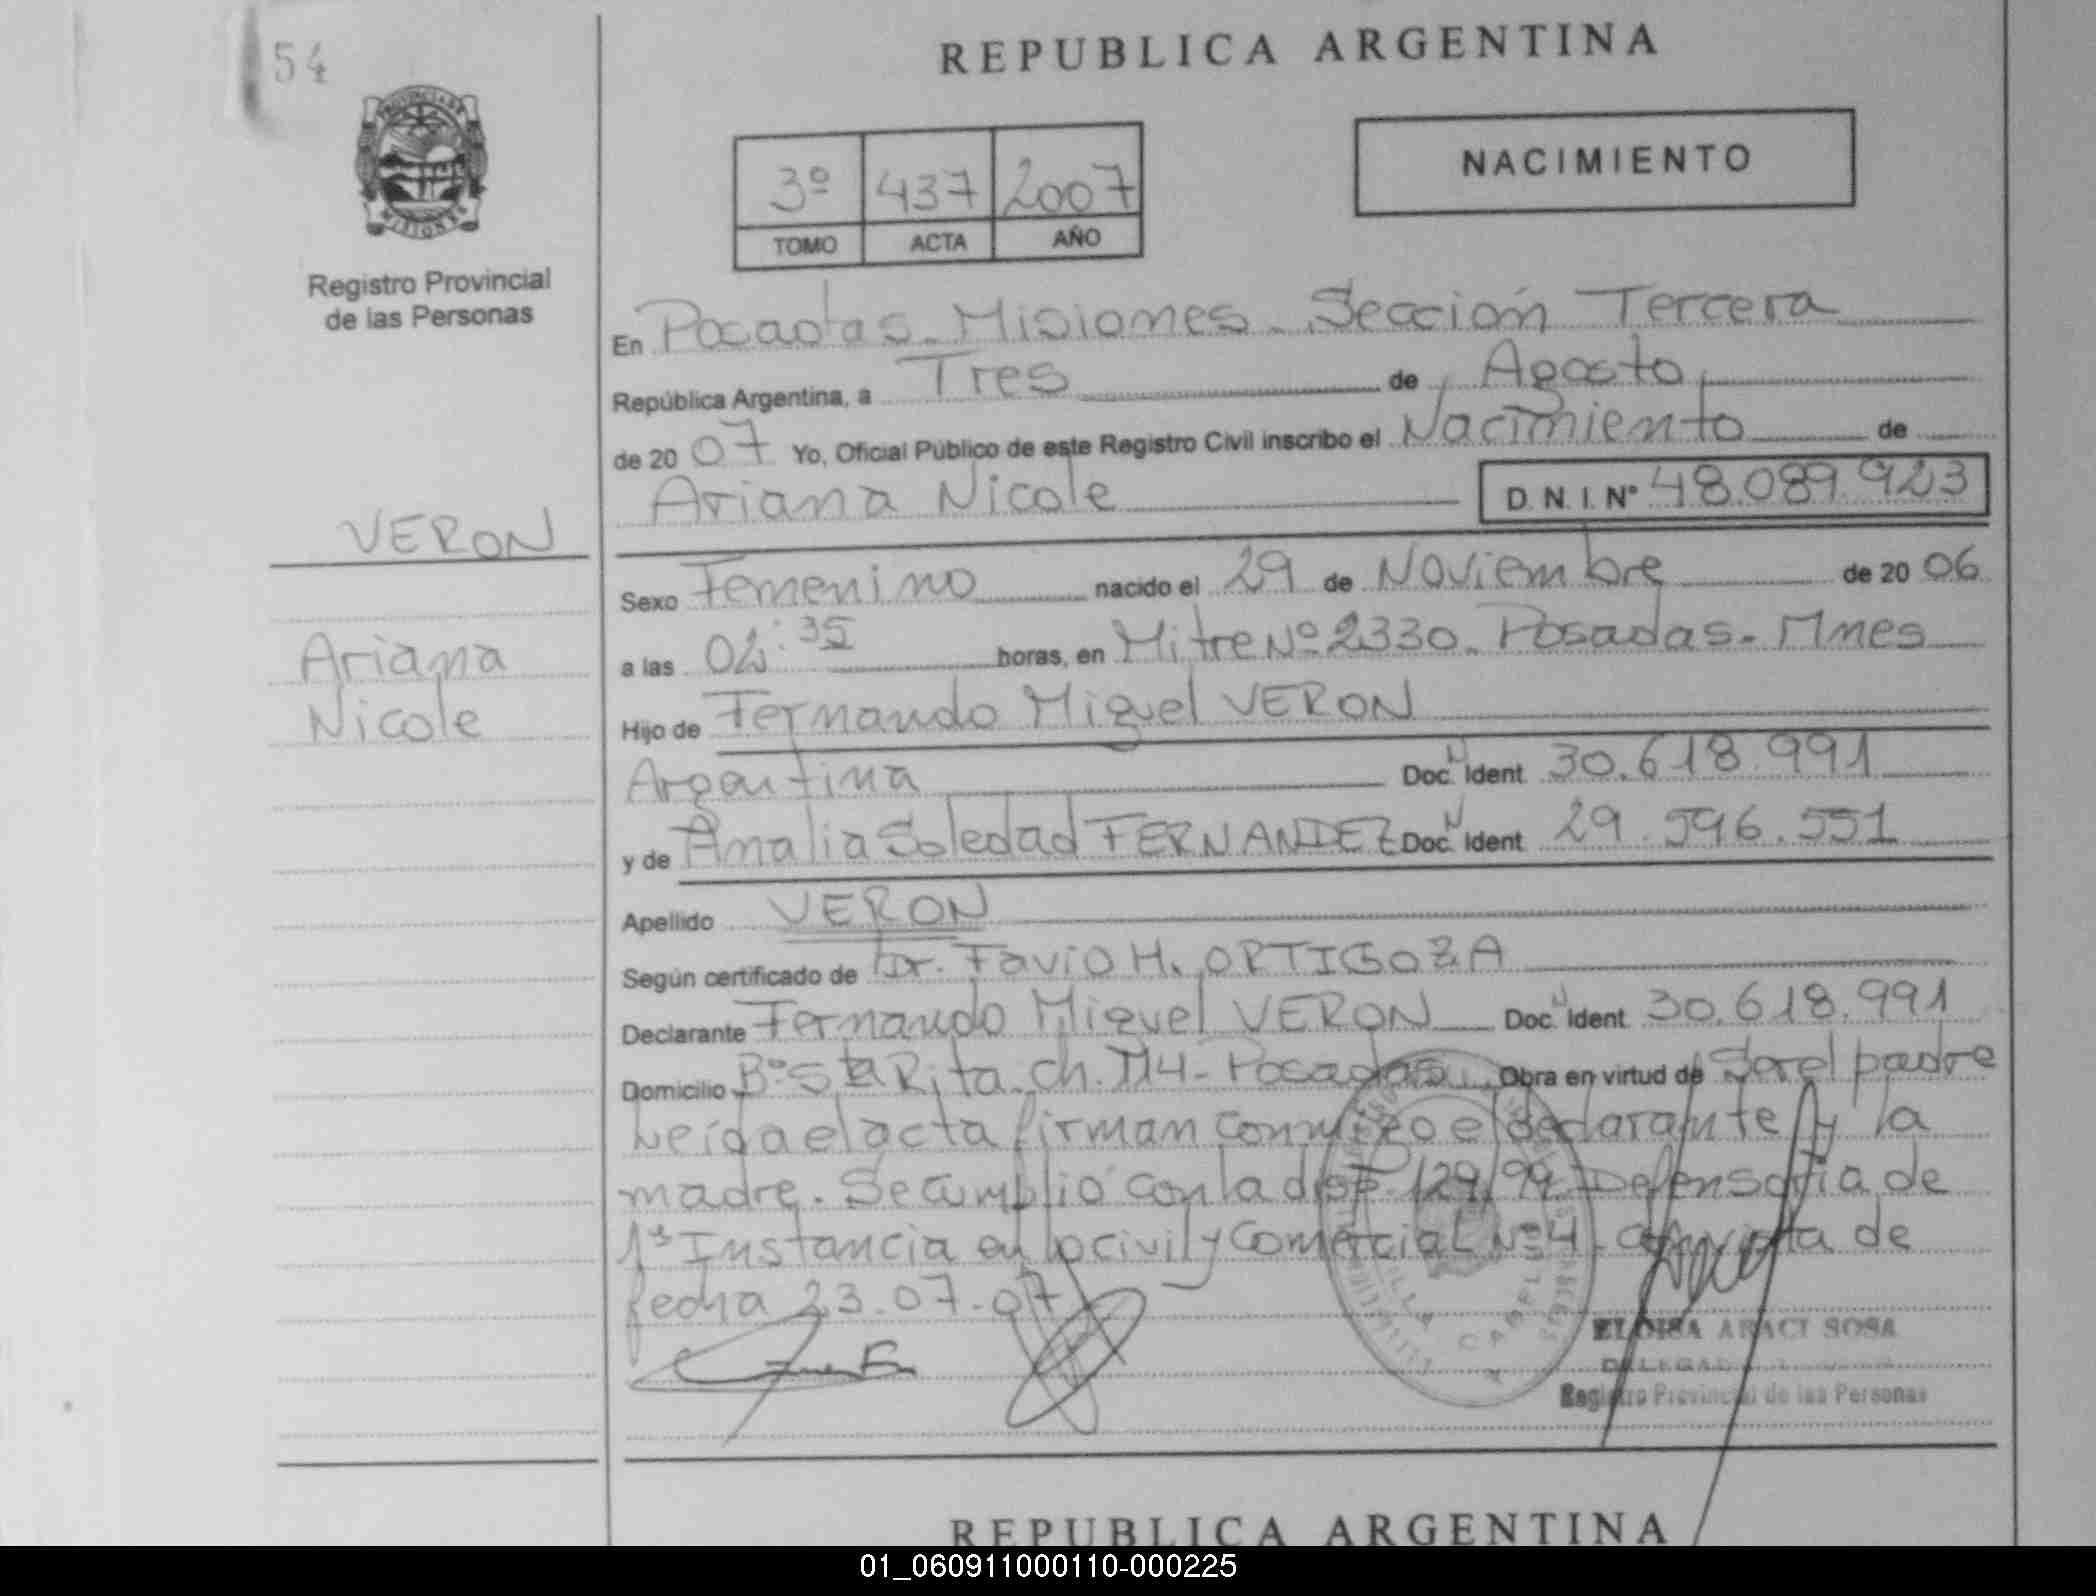 54
REPUBLICA ARGENTINA
PROVINCIA DE
MISIONES
Registro Provincial
de las Personas
3º 437 2007
TOMO ACTA AÑO
NACIMIENTO
En Posadas - Misiones - Sección Tercera
República Argentina, a Tres de Agosto
de 2007 Yo, Oficial Público de este Registro Civil inscribo el Nacimiento de
Ariana Nicole D. N. I. Nº 48.089.923
VERON
Sexo Femenino nacido el 29 de Noviembre de 2006
Ariana
a las 02:35 horas, en Mitre Nº 2330. Posadas - Mnes
Nicole
Hijo de Fernando Miguel VERON
Argentina Doc. N Ident 30.618.991
y de Analia Soledad FERNANDEZ Doc. N Ident 29.596.551
Apellido VERON
Según certificado de Dr. Favio H. ORTIGOZA
Declarante Fernando Miguel VERON Doc. N Ident 30.618.991
Domicilio Bº Sta Rita. ch. 114 - Posadas Obra en virtud de Ser el padre
Leída el acta firman conmigo el declarante y la
madre. Se cumplió con la disp. 129/99 Defensoría de
1ª Instancia en lo civil y Comercial Nº 4 de
fecha 23.07.07
ELOISA ARACI SOSA
DELEGADA
Registro Provincial de las Personas
REPUBLICA ARGENTINA
01_060911000110-000225